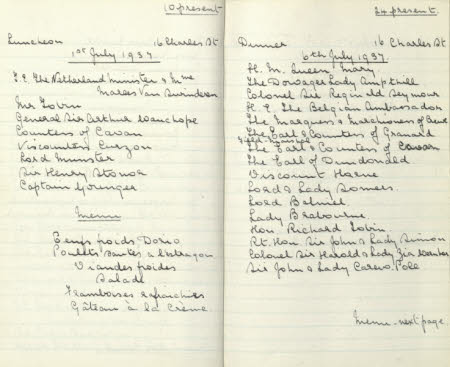 10 present
Luncheon 16 Charles St
1st July 1937
H.E. The Netherland Minister & Mme
Marees Van Swinderen
Mr
General Sir Arthur Wauchope
Countess of Cavan
Viscountess Curzon
Lord Munster
Sir Henry Stonor
Captain Younger
Menu
Oeufs froids Dorio
Poulets sautés à l'estragon
Viandes froides
Salade
Framboises rafraichies
Gâteau à la Crème.
24 present.
Dinner 16 Charles St
6th July 1937
H. M. Queen Mary
The Dowager Lady Ampthill
Colonel Sir Reginald Seymour
H. E. The Belgian Ambassador
The Marquess & Marchioness of Crewe
The Earl & Countess of Granard
Field-Marshal
The Earl & Countess of Cavan
The Earl of Dundonald
Viscount Horne
Lord & Lady Somers.
Lord Balniel
Lady Brabourne.
Hon. Richard
Rt. Hon Sir John & Lady Simon
Colonel Sir Harold & Lady Zia Wernher
Sir John & Lady Carew Pole
Menu - next page.